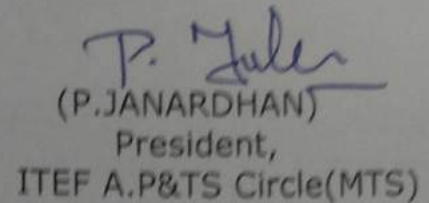 (P.JANARDHAN)
President,
ITEF A.P&TS Circle(MTS)